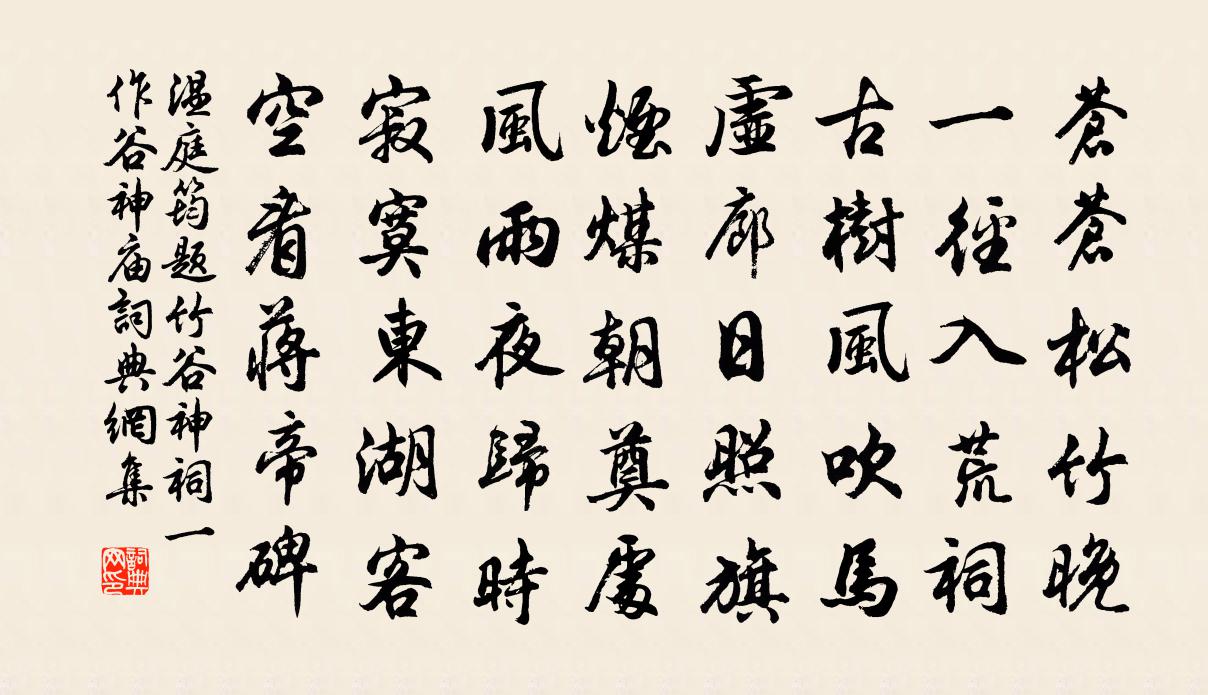 蒼蒼松竹晚
一徑入荒祠
古樹風吹馬
虛廊日照旗
煙煤朝奠處
風雨夜歸時
寂寞東湖客
空看蔣帝碑
溫庭筠題竹谷神祠一
作谷神庙詞典網集